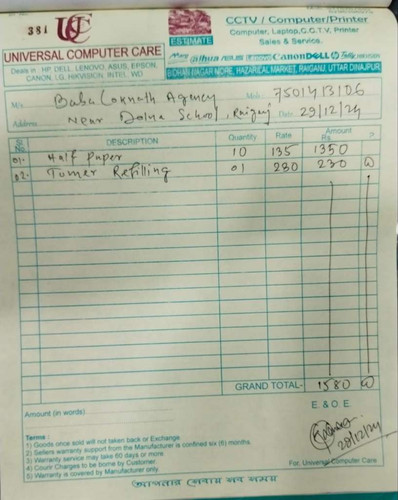 381 UCC
ESTIMATE
CCTV / Computer/Printer
Computer, Laptop, C.C.T.V, Printer
Sales & Service.
UNIVERSAL COMPUTER CARE
Deals in : HP, DELL, LENOVO, ASUS, EPSON,
CANON, LG, HIKVISION, INTEL, WD
alhua Lenovo Canon DELL
BIDHAN NAGAR MORE, HAZARICAL MARKET, RAIGANJ, UTTAR DINAJPUR
M/s. Baba Loknath Agency Mob. 7501413106
Address Near Dolna School, Raiganj Date 29/12/24
Sl. No. DESCRIPTION Quantity Rate Amount Rs. P.
01. Half Paper 10 135 1350
02. Tonner Refilling 01 230 230
GRAND TOTAL- 1580
Amount (in words)
E. & O. E.
29/12/24
Terms :
1) Goods once sold will not taken back or Exchange
2) Sellers warranty support from the Manufacturer is confined six (6) months.
3) Warranty service may take 60 days or more
4) Courir Charges to be borne by Customer.
5) Warranty is covered by Manufacturer only.
For, Universal Computer Care
আপনার সেবায় সব সময়